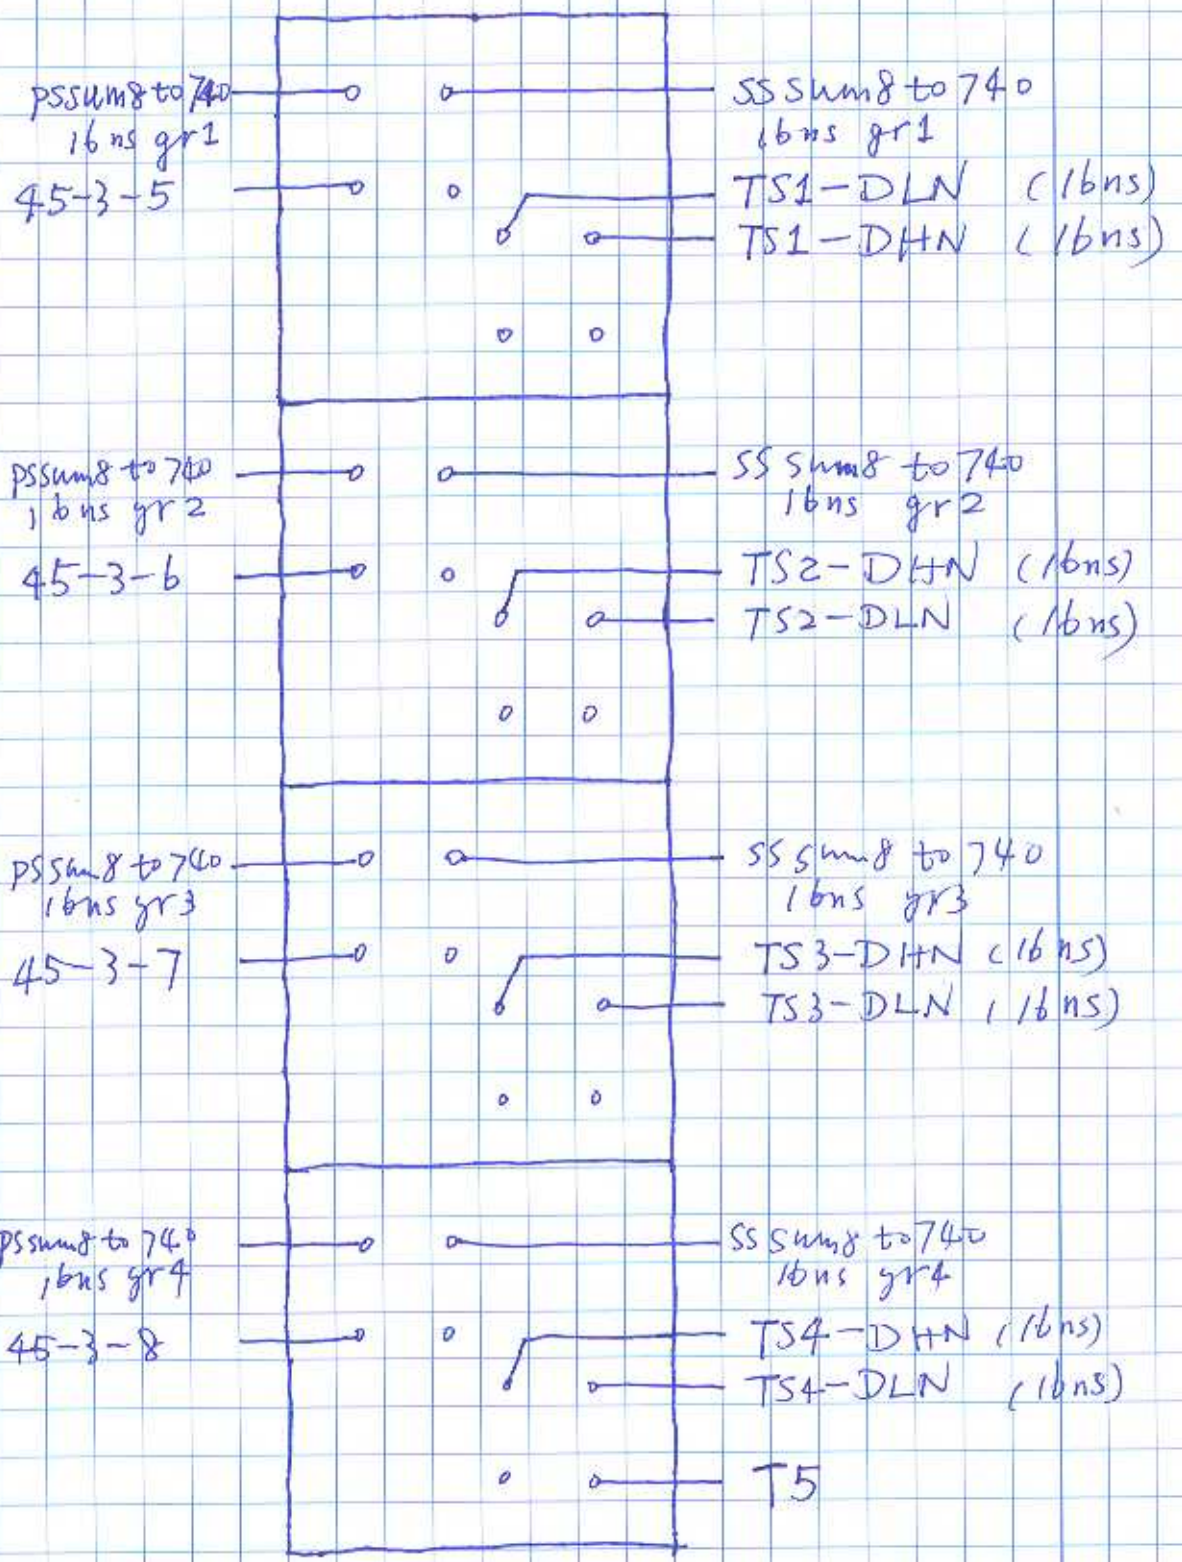 pssum8 to 740
16ns gr1
SS Sum8 to 740
16ns gr1
45-3-5
TS1-DLN (16ns)
TS1-DHN (16ns)
pssum8 to 740
16ns gr2
SS Sum8 to 740
16ns gr2
45-3-6
TS2-DHN (16ns)
TS2-DLN (16ns)
pssum8 to 740
16ns gr3
SS Sum8 to 740
16ns gr3
45-3-7
TS3-DHN (16ns)
TS3-DLN (16ns)
pssum8 to 740
16ns gr4
SS Sum8 to 740
16ns gr4
45-3-8
TS4-DHN (16ns)
TS4-DLN (16ns)
T5